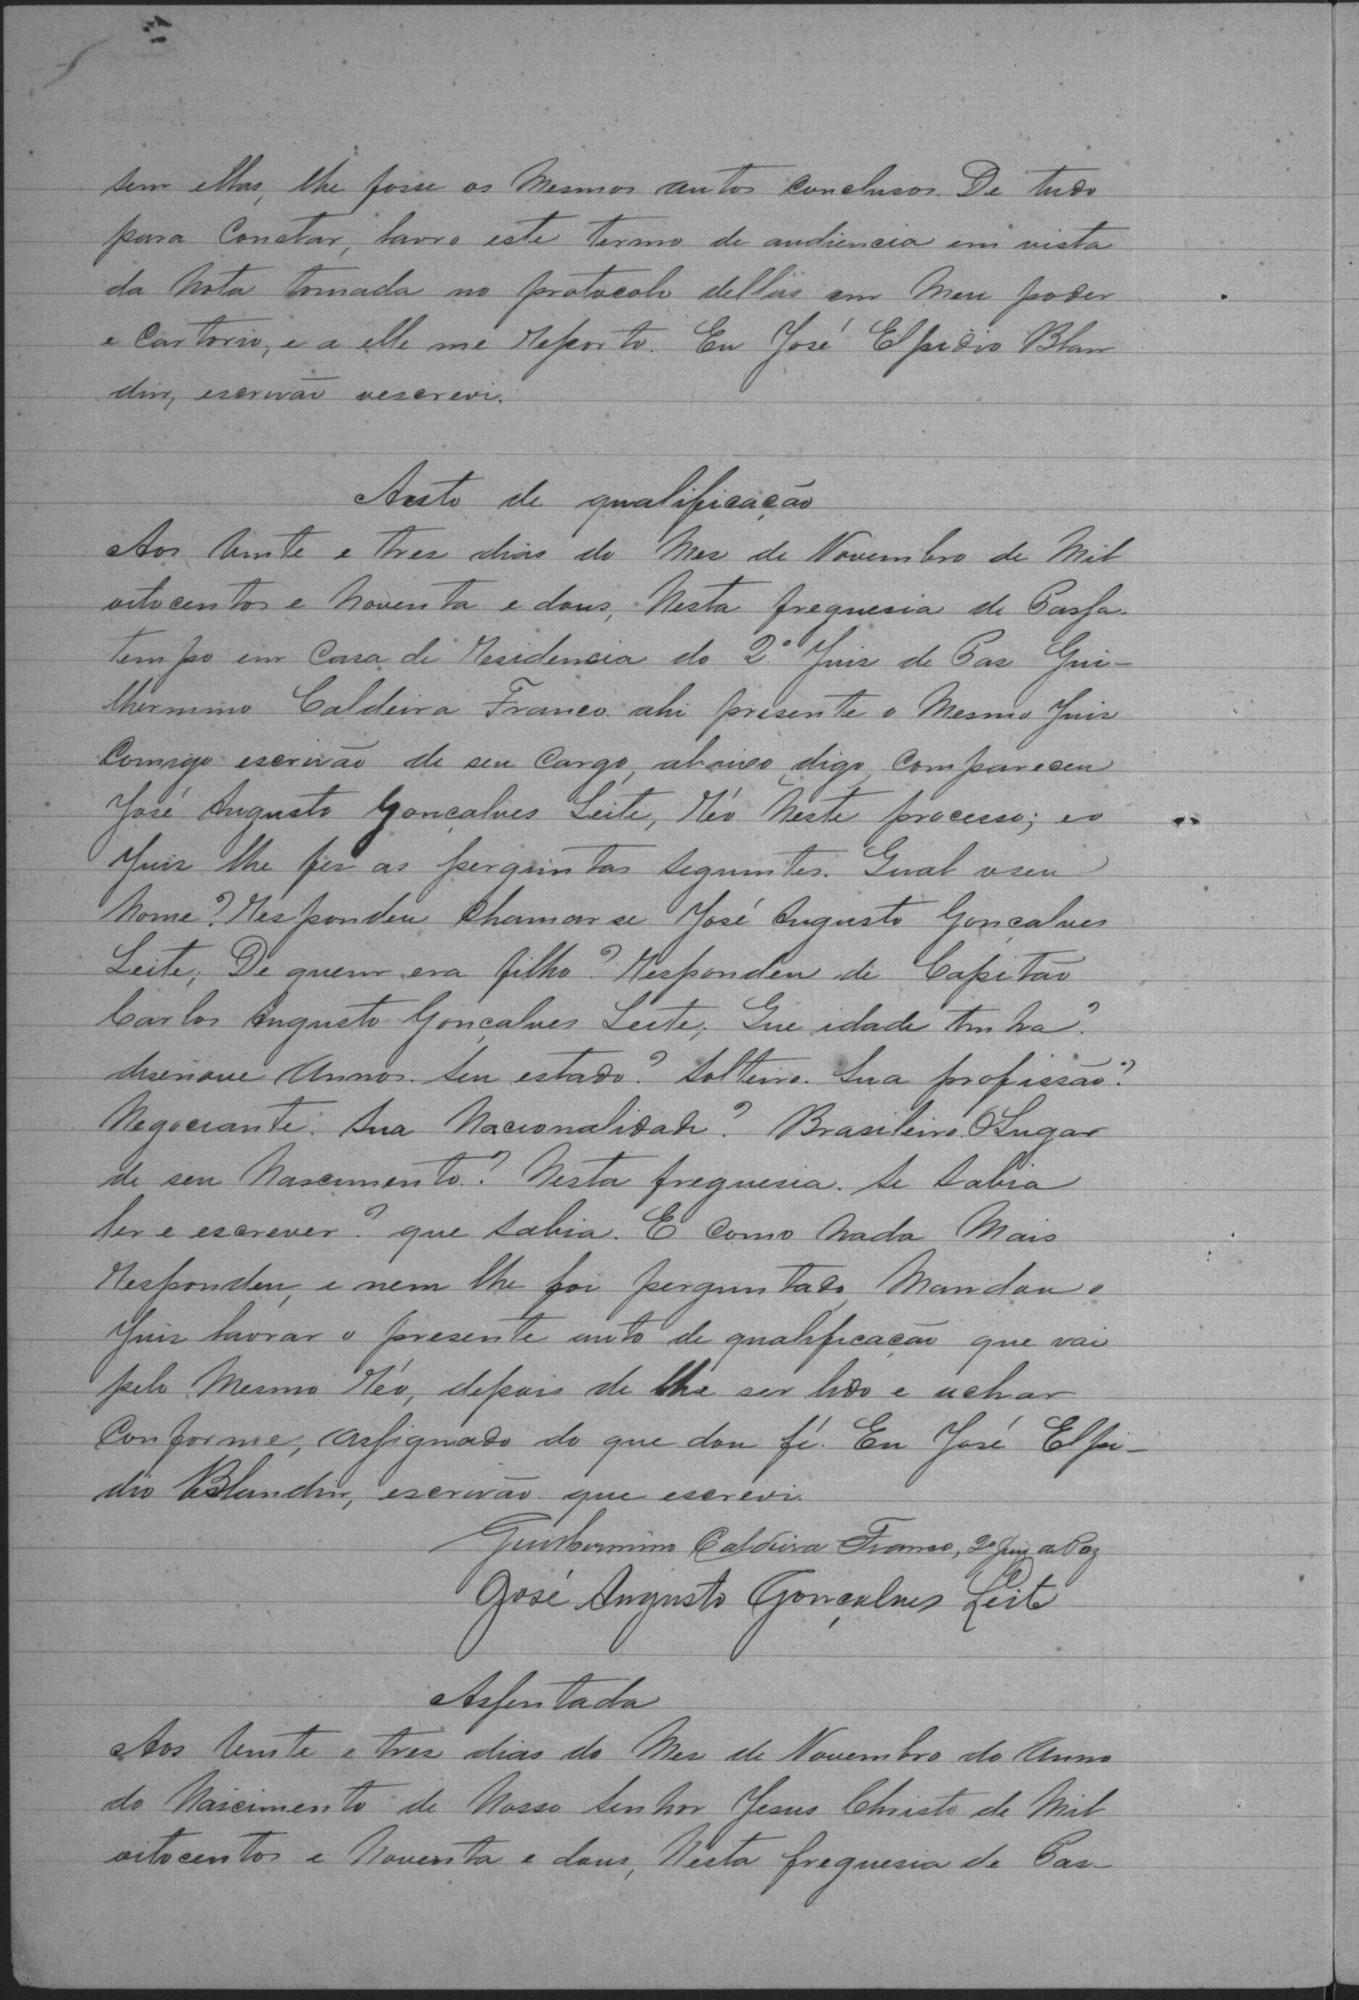 sem ellas, lhe fosse os mesmos autos conclusos. De tudo
para constar, lavro este termo de audiencia em vista
da nota tomada no protocolo dellas em meu poder
e cartorio, e a elle me reporto. Eu José Elpidio Blan
din, escrivão oescrevi.
Auto de qualificação
Aos vinte e tres dias do mez de Novembro de mil
oitocentos e noventa e dous, nesta freguesia de Passa-
tempo em casa de residencia do 2º Juiz de Paz Gui-
lhermino Caldeira Franco ahi presente o mesmo Juiz
comigo escrivão de seu cargo, abaixo, digo, compareceu
José Augusto Gonçalves Leite, réo neste processo; eo
Juiz lhe fez as perguntas seguintes. Qual oseu
nome? Respondeu chamarse José Augusto Gonçalves
Leite; De quem era filho? Respondeu de Capitão
Carlos Augusto Gonçalves Leite; Que idade tinha?
disenove annos. Seu estado? Solteiro. Sua profissão?
Negociante. Sua nacionalidade? Brasileiro. O lugar
de seu nascimento? Nesta freguesia. Se sabia
ler e escrever? que sabia. E como nada mais
respondeu, e nem lhe foi perguntado mandou o
Juiz lavrar o presente auto de qualificação que vai
pelo mesmo réo, depois de lhe ser lido e achar
conforme, assignado do que dou fé. Eu José Elpi-
dio Blandin, escrivão que escrevi.
Guilhermino Caldeira Franco, 2º Juiz de Paz
José Augusto Gonçalves Leite
Assentada
Aos vinte e tres dias do mez de Novembro do anno
do Nascimento de Nosso Senhor Jesus Christo de mil
oitocentos e noventa e dous, nesta freguesia de Pas-